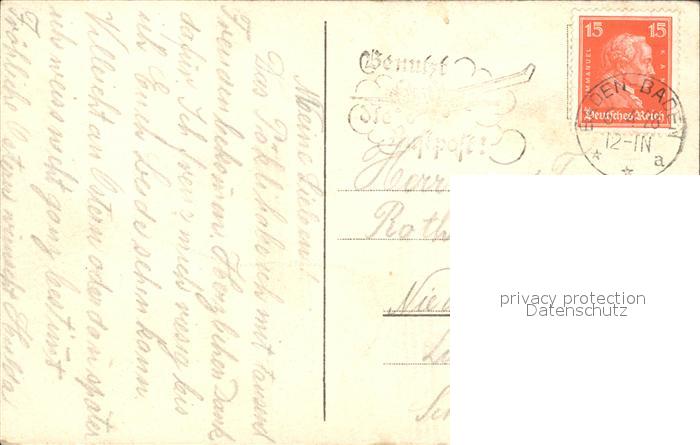 Meine Lieben!
Das Päckli habe ich mit tausend
Freuden bekommen Herzlichen Dank
dafür. Ich freue mich riesig bis
ich Euch beide sehn kann.
Villeicht an Ostern oder dann später
ich weis nicht ganz bestimt
Fröhliche Ostern wünscht Hulda
Benutzt
die
Luftpost!
15 15
IMMANUEL KANT
Deutsches Reich
BADEN BADEN
12-1N
a
Herr
Roth
Nied
privacy protection
Datenschutz